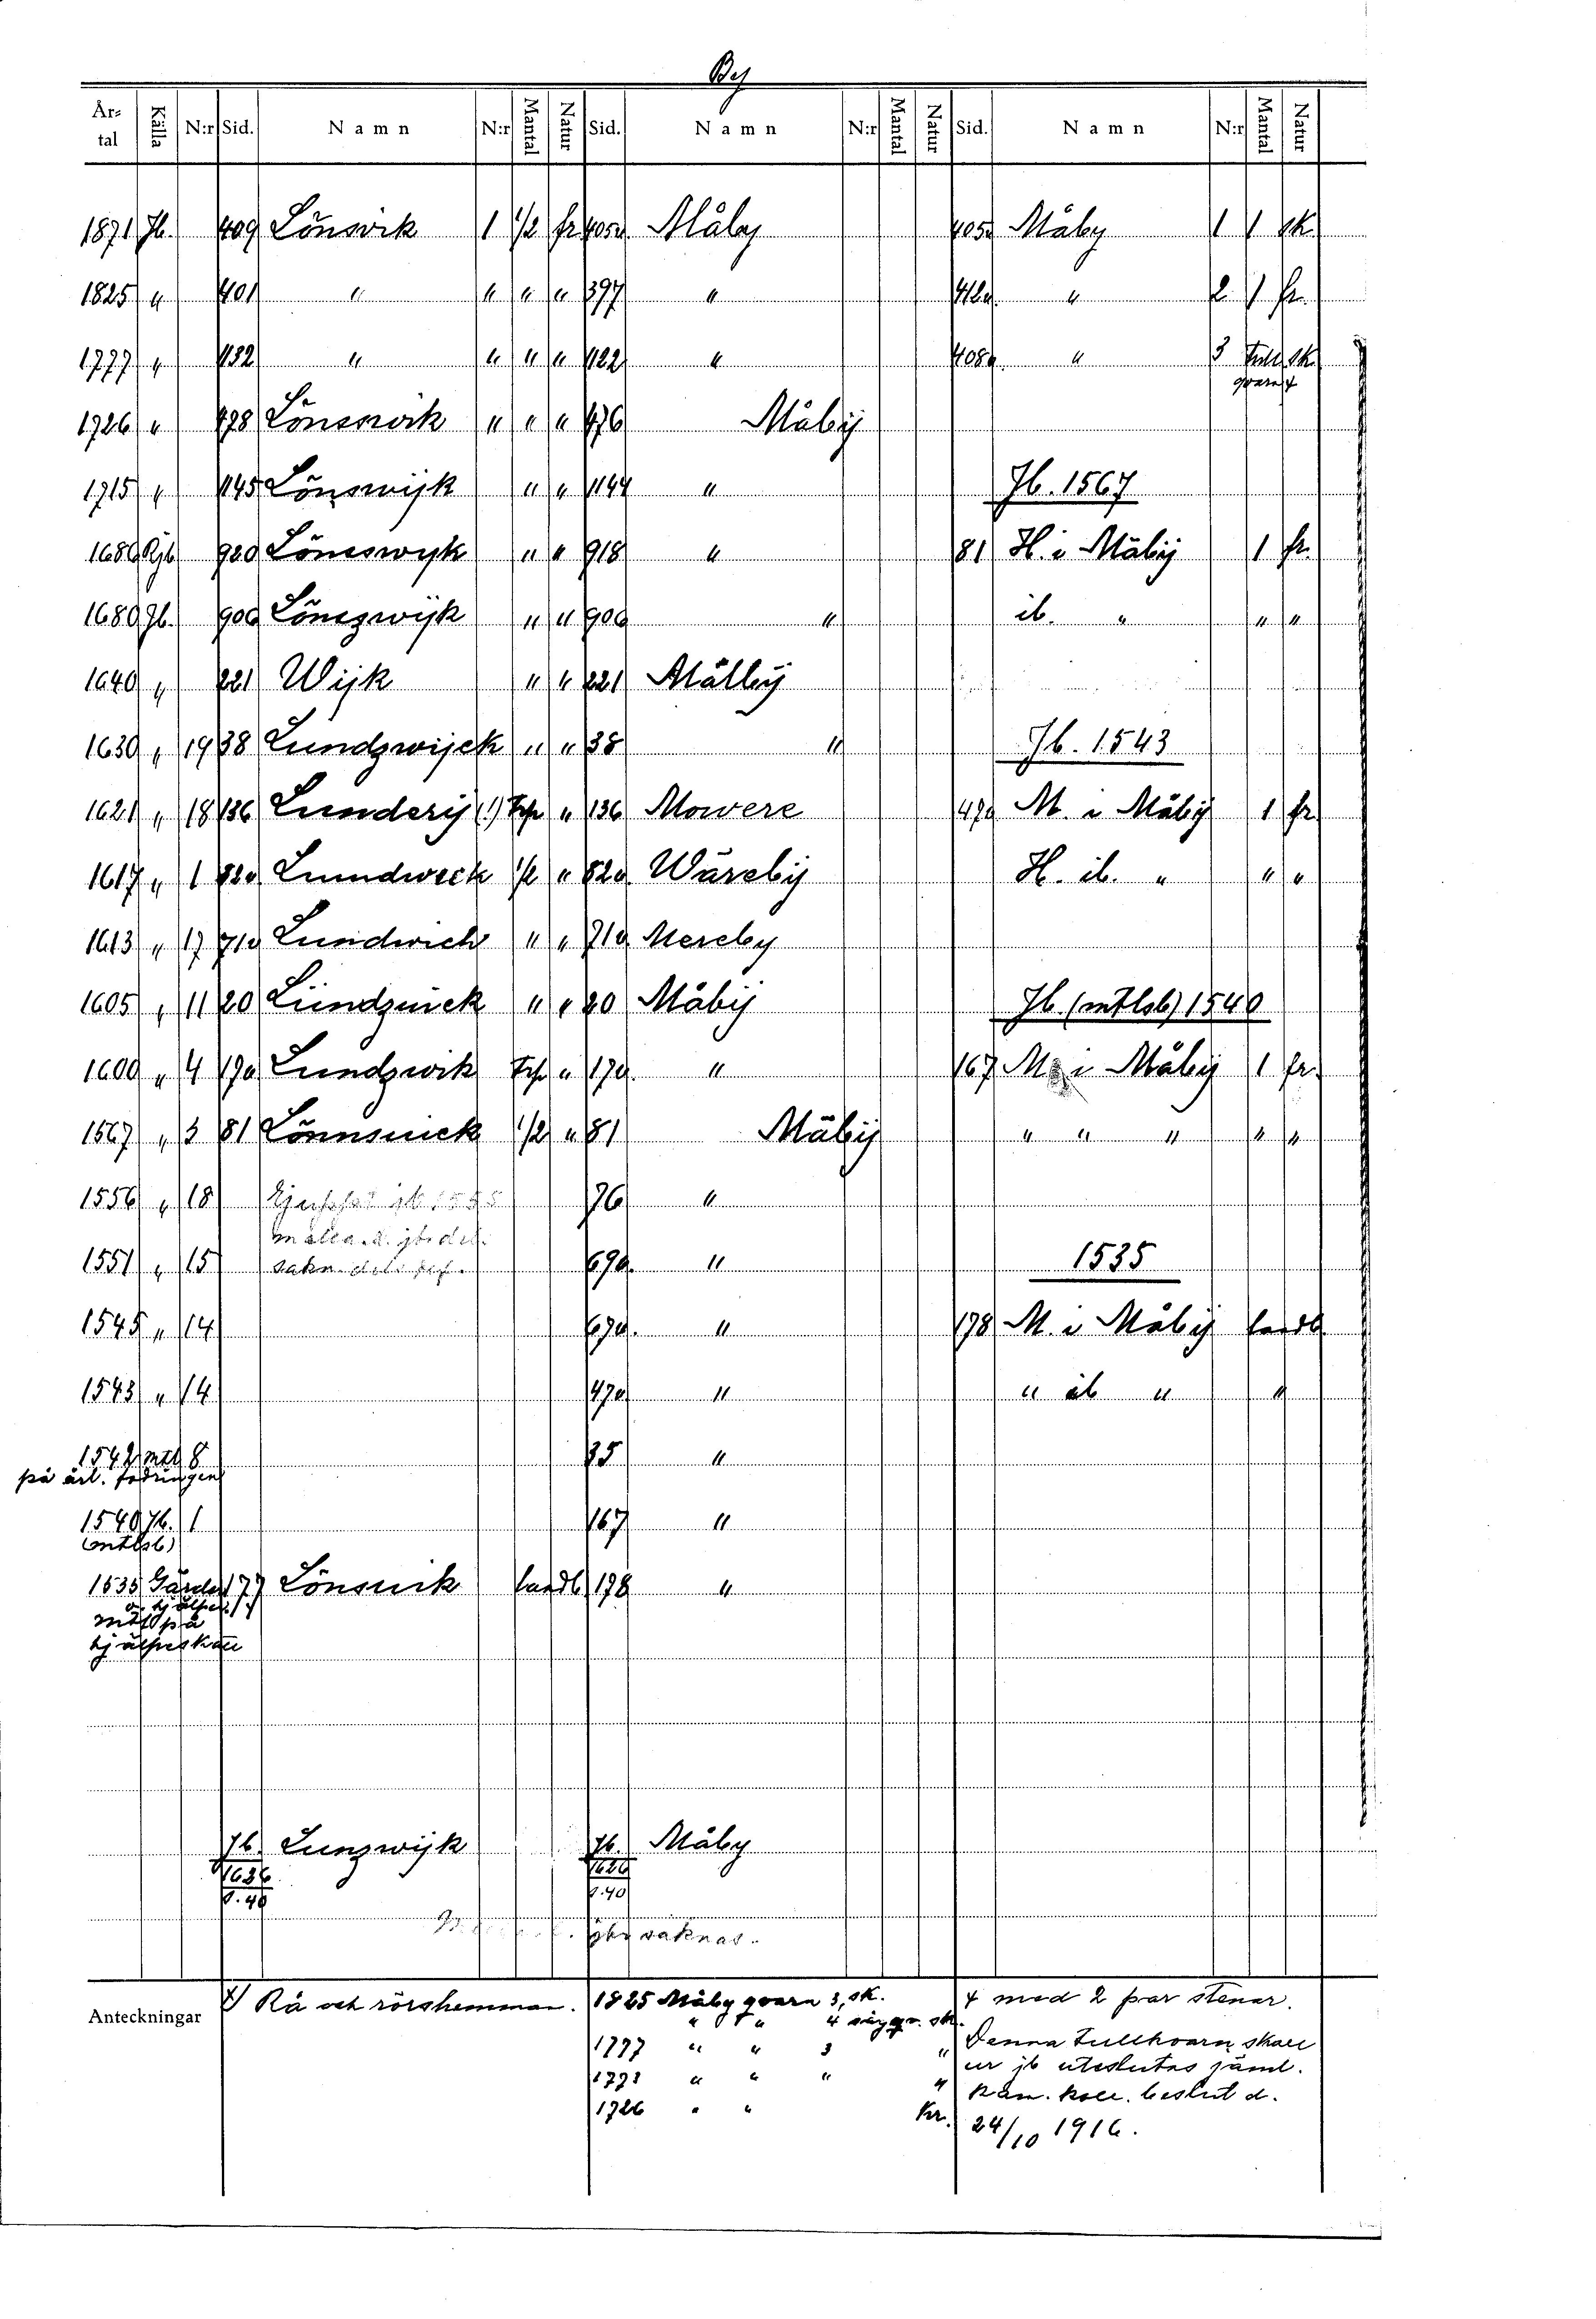 By
År-tal Källa N:r Sid. Namn N:r Mantal Natur Sid. Namn N:r Mantal Natur Sid. Namn N:r Mantal Natur
1871 Jb. 409 Lönsvik 1 1/2 fr 405a Måby 405a Måby 1 1 sk.
1825 " 401 " " " " 397 " 412a " 2 1 fr.
1777 " 1132 " " " " 1122 " 408a " 3 Tull sk.
qvarn x
1726 " 478 Lönssvik " " " 476 Måby
1715 " 1145 Lönswijk " " 1144 " Jb. 1567
1686 Rjb 920 Löneswyk " " 918 " 81 H. i Måbij 1 fr.
1680 Jb. 906 Lönszwijk " " 906 " ib. " " "
1640 " 221 Wijk " " 221 Målbÿ
1630 " 19 38 Lundzwijck " " 38 " Jb. 1543
1621 " 18 136 Lunderij (!) Trp " 136 Mowere 47a M. i Måbij 1 fr
1617 " 1 82a Lundweck 1/2 " 82a Wäreby H. ib. " " "
1613 " 17 71a Lundwich " " 71a Mereby
1605 " 11 20 Lündzuick " " 20 Måbij Jb. (mtlsb) 1540
1600 " 4 17a Lundzwik Trp " 17a " 167 M i Måbij 1 fr.
1567 " 3 81 Lönnsuick 1/2 " 81 Måbij " " " " "
1556 " 18 76 "
1551 " 15 sakn. 69a " 1535
1545 " 14 67a " 178 M. i Måbij landb
1543 " 14 47a " " ib " "
1542 mtl 8 35 "
på årl. fodringen
1540 Jb. 1 167 "
(mtlsb)
1535 Gärder 177 Lönsuik landb 178 "
o. hjälper
mtl på
hjälpeskatt
Jb. Lunzwijk Jb. Måby
1636 1636
s. 40 s. 40
jbr saknas.
Anteckningar x/ Rå och rörshemman. 1825 Måby qvarn 3, sk. x med 2 par stenar.
" " 4 sågqv. sk.
1777 " " 3 " Denna tullkvarn skall
ur jb uteslutas jäml.
1771 " " " " kam. koll. beslut d.
1726 " " kr. 24/10 1916.